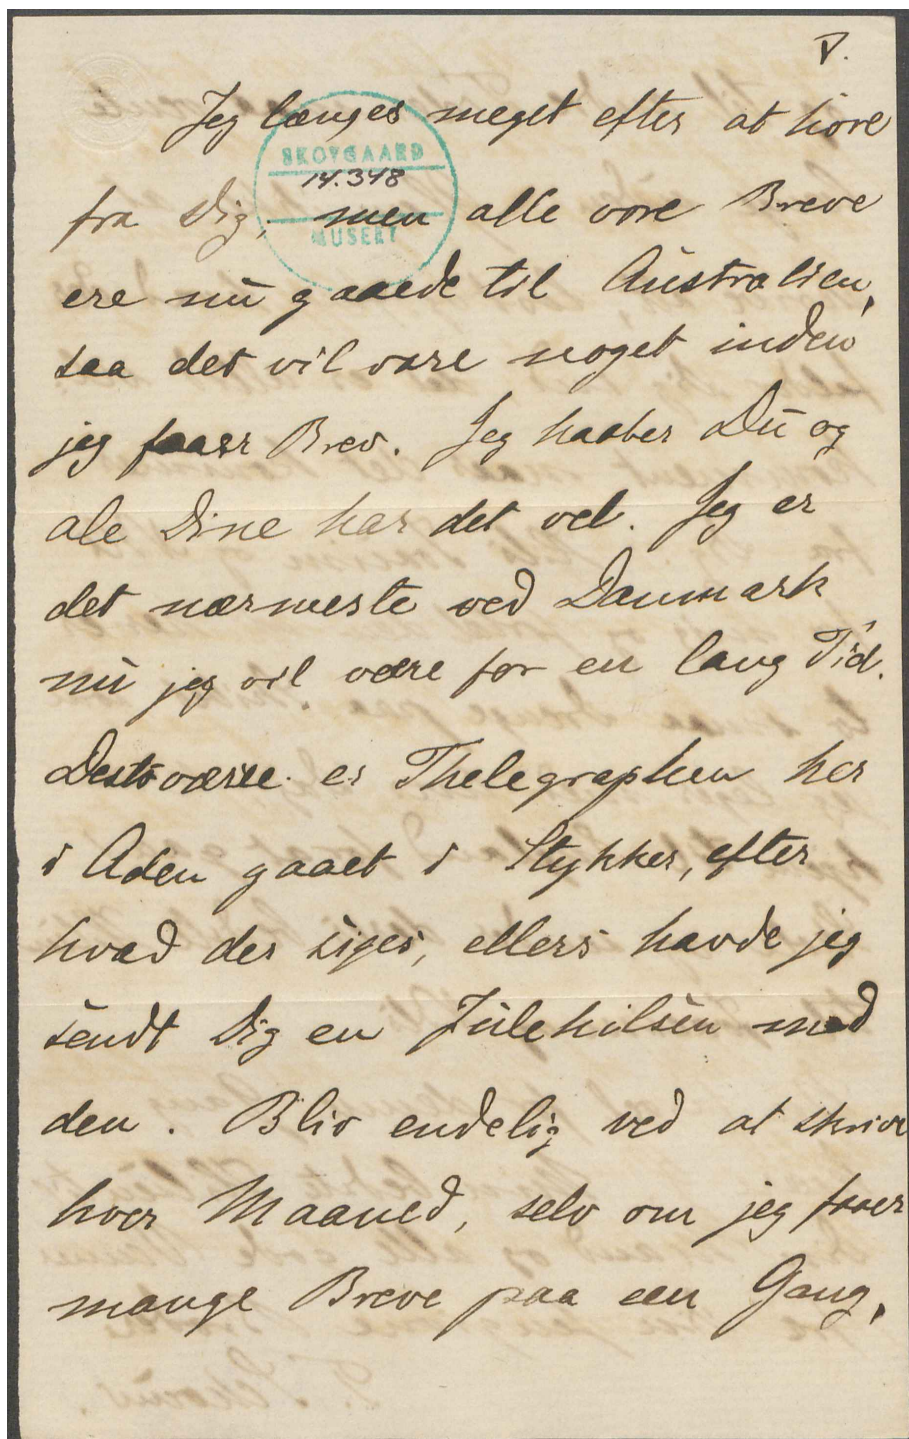 Jeg længes meget efter at höre
SKOVGAARD
14.348
MUSEET
fra Dig, men alle vore Breve
ere nu gaaede til Australien,
saa det vil vare noget inden
jeg faaer Brev. Jeg haaber Du og
ale Dine har det vel. Jeg er
det nærmeste ved Danmark
nu jeg vil være for en lang Tid.
Desto værre er Thelegraphen her
i Aden gaaet i Stykker, efter
hvad der siges, ellers havde jeg
sendt Dig en Julehilsen med
den. Bliv endelig ved at skrive
hver Maaned, selv om jeg faaer
mange Breve paa een Gang,